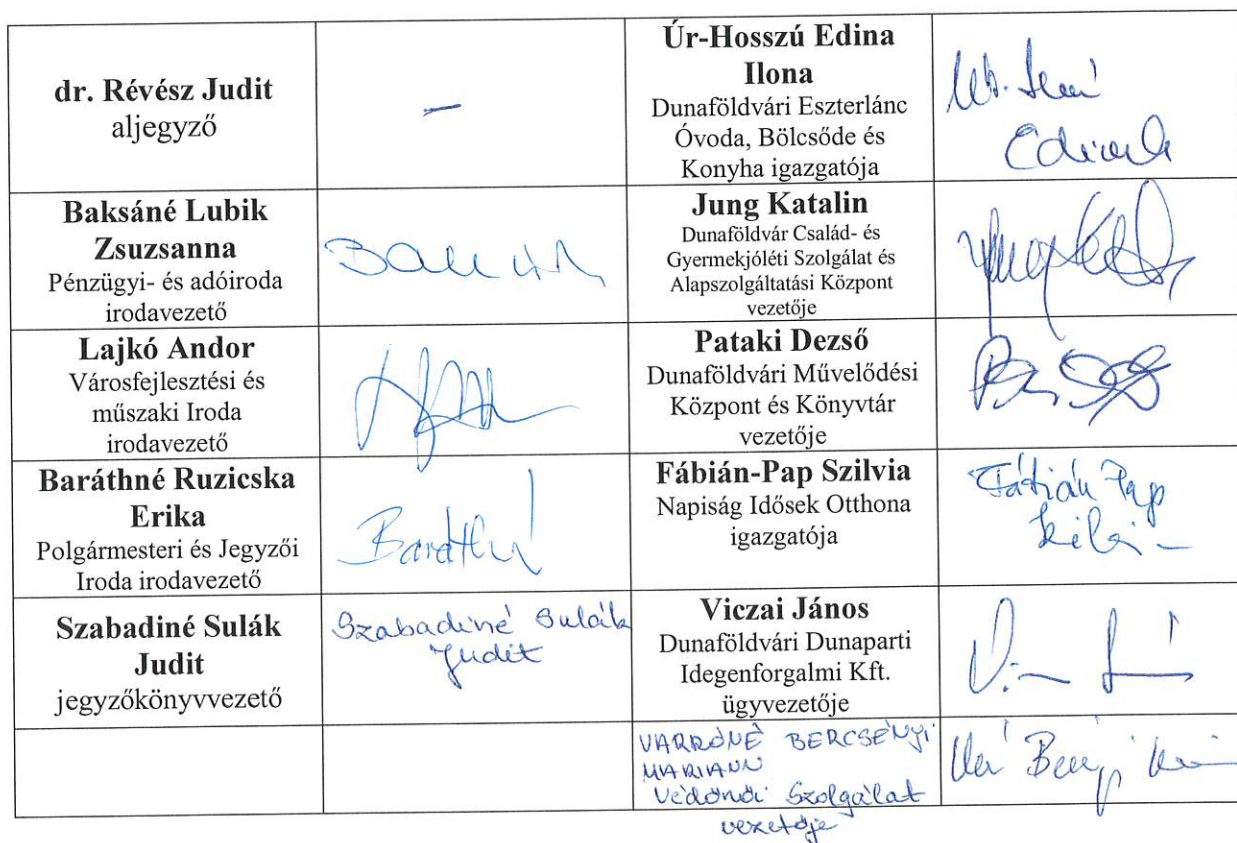 dr. Révész Judit
aljegyző
–
Úr-Hosszú Edina
Ilona
Dunaföldvári Eszterlánc
Óvoda, Bölcsőde és
Konyha igazgatója
Baksáné Lubik
Zsuzsanna
Pénzügyi- és adóiroda
irodavezető
Jung Katalin
Dunaföldvár Család- és
Gyermekjóléti Szolgálat és
Alapszolgáltatási Központ
vezetője
Lajkó Andor
Városfejlesztési és
műszaki Iroda
irodavezető
Pataki Dezső
Dunaföldvári Művelődési
Központ és Könyvtár
vezetője
Baráthné Ruzicska
Erika
Polgármesteri és Jegyzői
Iroda irodavezető
Baráthné
Fábián-Pap Szilvia
Napiság Idősek Otthona
igazgatója
Fábián Pap
Szabadiné Sulák
Judit
jegyzőkönyvvezető
Szabadiné Sulák
Judit
Viczai János
Dunaföldvári Dunaparti
Idegenforgalmi Kft.
ügyvezetője
VARRÓNÉ BERCSÉNYI
MARIANN
Védőnői Szolgálat
vezetője